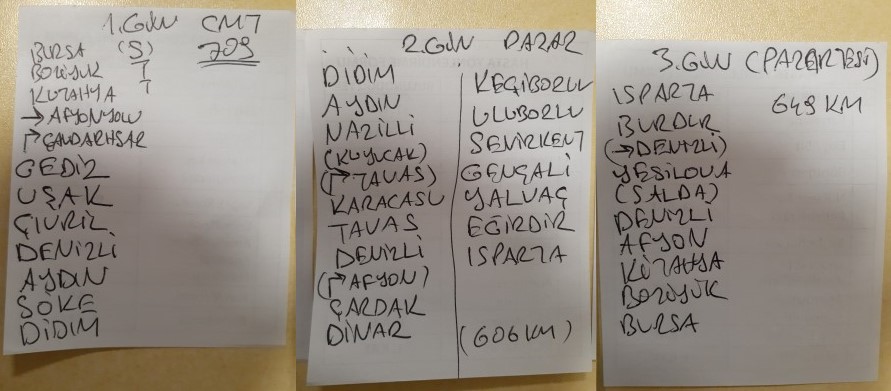 1.GÜN CMT
BURSA (S) 709
BOZÜYÜK T
KÜTAHYA T
→ AFYONYOLU
↱ ÇAVDARHİSAR
GEDİZ
UŞAK
ÇİVRİL
DENİZLİ
AYDIN
SÖKE
DİDİM
2.GÜN PAZAR
DİDİM
AYDIN
NAZİLLİ
(KUYUCAK)
(↱ TAVAS)
KARACASU
TAVAS
DENİZLİ
(↱ AFYON)
ÇARDAK
DİNAR
KEÇİBORLU
ULUBORLU
SENİRKENT
GENÇALİ
YALVAÇ
EĞİRDİR
ISPARTA
(606 KM)
3.GÜN (PAZERTESİ)
ISPARTA
649 KM
BURDUR
(→ DENİZLİ)
YEŞİLOVA
(SALDA)
DENİZLİ
AFYON
KÜTAHYA
BOZÜYÜK
BURSA